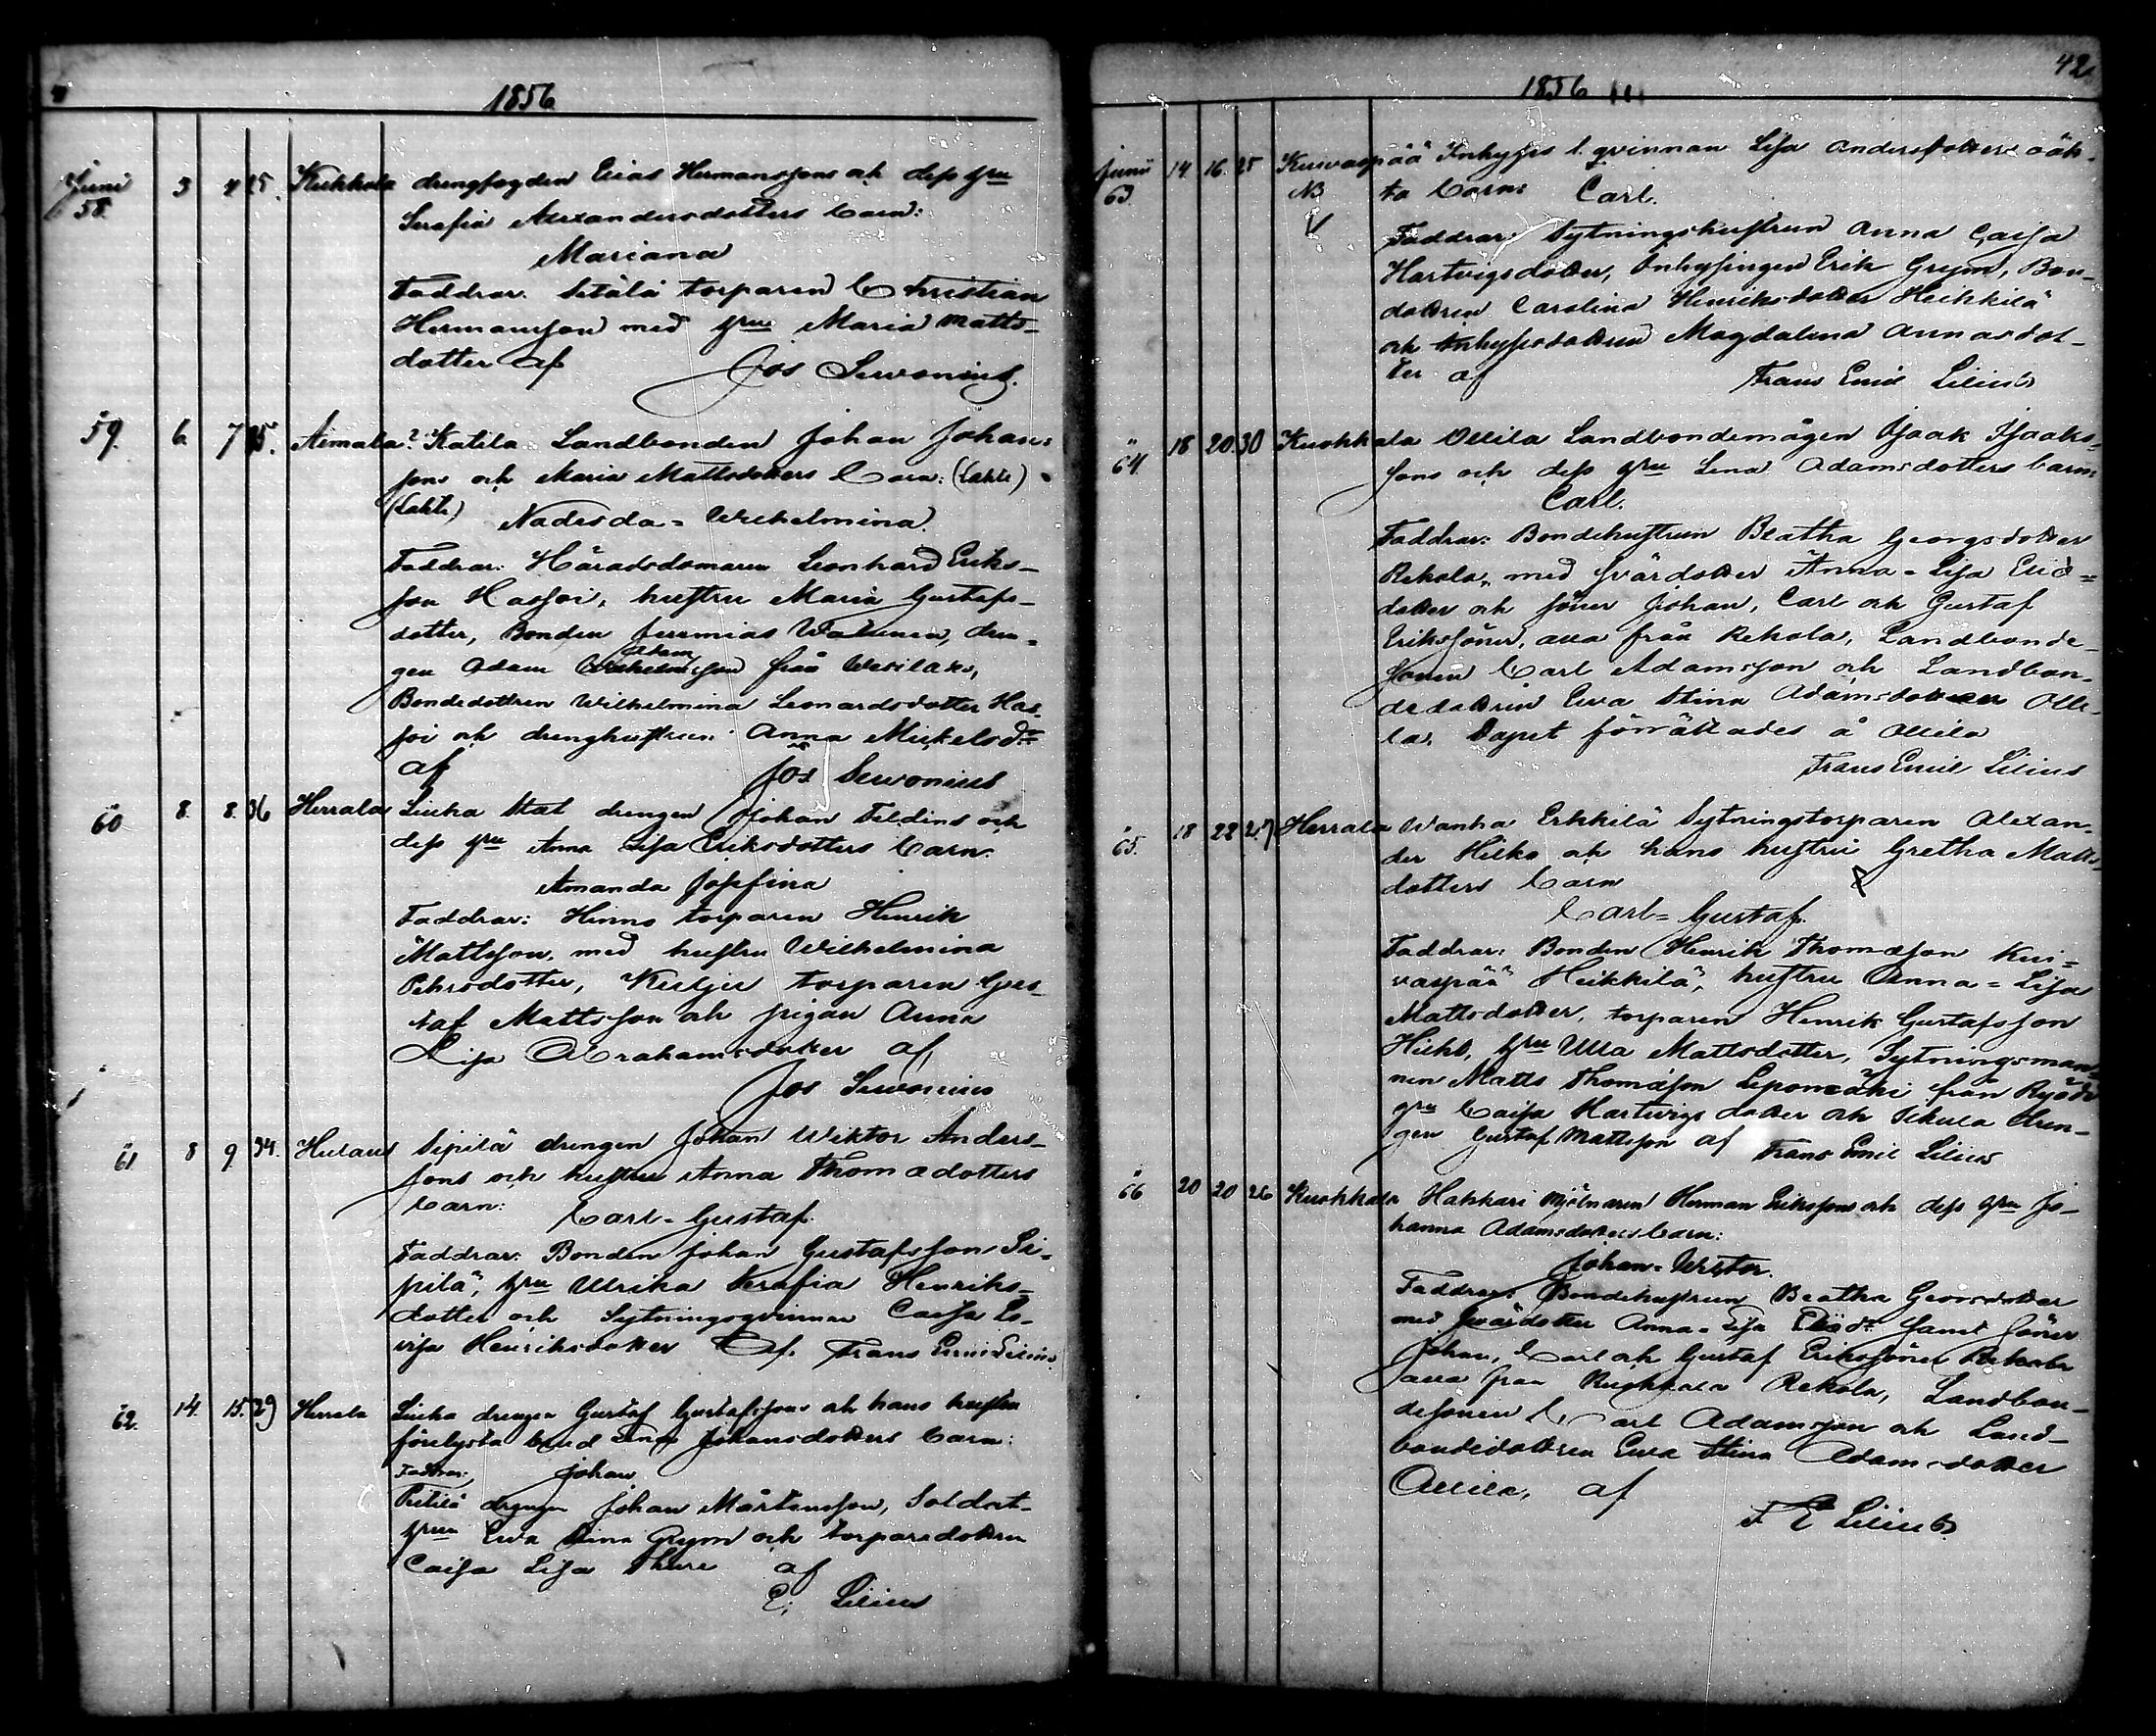 1856
Juni 58. 3 4 25. Kukkola drengfogden Elias Hermanssons och dess hru
Serafia Alexandersdotters barn:
Mariana
Faddrar. Setälä torparen Christian
Hermansson med hru Maria Matts-
dotter af Jos Sewonius.
59. 6. 7 25. Aimala? Katila Landbonden Johan Johans-
sons och Maria Mattsdotters barn: (Lahti)
(Lahti) Nadesda-Wilhelmina.
Faddrar: Häradsdomaren Leonhard Eriks-
son Hassoi, hustru Maria Gustafs-
dotter, Bonden Jeremias Walunen, dren-
Adam
gen Adam son från Wesilaks,
Bondedottren Wilhelmina Leonardsdotter Has-
soi och drenghustrun Anna Mickelsdr
af Jos Sewonius
60 8. 8. 36 Herrala Liuha Stat drengen Johan Feldins och
dess hru Anna Lisa Eriksdotters barn.
Amanda Josefina
Faddrar: Hinno torparen Henrik
Mattsson, med hustru Wilhelmina
Pehrsdotter, torparen Gus-
taf Mattsson och pigan Anna
Lisa Abrahamsdotter af,
Jos Sewonius
61 8 9. 34. Sipilä drengen Johan Wiktor Anders-
sons och hustru Anna Thomædotters
barn: Carl-Gustaf.
Faddrar: Bonden Johan Gustafsson Si-
pilä, hru Ulrika Serafia Henriks-
dotter och Sytningsqvinnan Caisa Lo-
visa Henriksdotter af. Frans Emil Lilius.
62. 14. 15. 29 Herrala Liuha drengen Gustaf Gustafssons och hans hustru
förelysta brud Johansdotters barn:
Faddrar: Johan
Pietilä drengen Johan Mårtensson, Soldat-
hrun Ewa Stina Grym och torparedottren
Caisa Lisa Thure af
E. Lilius
42.
1856
Junii 63. 14. 16. 25 Kuivaspää Inhyses l. qvinnan Lisa Andersdotters oäk-
NB ta barn: Carl.
Faddrar: Sytningshustrun Anna Caisa
Hartvigsdotter, Inhysingen Erik Grym, Bon-
dottren Carolina Henriksdotter Heikkilä
och Inhysesdottren Magdalena Annasdot-
ter af Frans Emil Lilius
64. 18 20. 30 Kuokkala Ollila Landbondemågen Isaak Isaaks-
sons och dess hru Lena Adamsdotters barn:
Carl.
Faddrar: Bondehustrun Beatha Georgsdotter
Rekola, med svärdotter Anna-Lisa Elis-
dotter och söner Johan, Carl och Gustaf
Erikssöner, alla från Rekola, Landbonde-
sonen Carl Adamsson och Landbon-
dedottren Ewa Stina Adamsdotter Olli-
la. Dopet förrättades å Ollila
Frans Emil Lilius
65. 18 22 27. Herrala Wanha Erkkilä Sytningstorparen Alexan-
der Hilko och hans hustru Gretha Matts-
dotters barn
Carl-Gustaf.
Faddrar: Bonden Henrik Thomasson Kui-
vaspää Heikkilä, hustru Anna-Lisa
Mattsdotter, torparen Henrik Gustafsson
Hilko, hru Ulla Mattsdotter, Sytningsman-
nen Matts Thomasson Leponiäki från
hru Caisa Hartvigsdotter och dren-
gen Gustaf Mattsson af Frans Emil Lilius
66 20 20 26 Kuokkala Hakkari mjölnaren Herman Erikssons och dess hru Jo-
hanna Adamsdotters barn:
Johan-Wiktor.
Faddrar: Bondehustrun Beatha Georsdotter
med svärdotter Anna-Lisa Elisdr samt söner
Johan, Carl och Gustaf Erikssöner Rekola
alla från Kuokkala Rekola, Landbon-
desonen Carl Adamsson och Land-
bondedottren Ewa Stina Adamsdotter
Ollila, af
F E Lilius